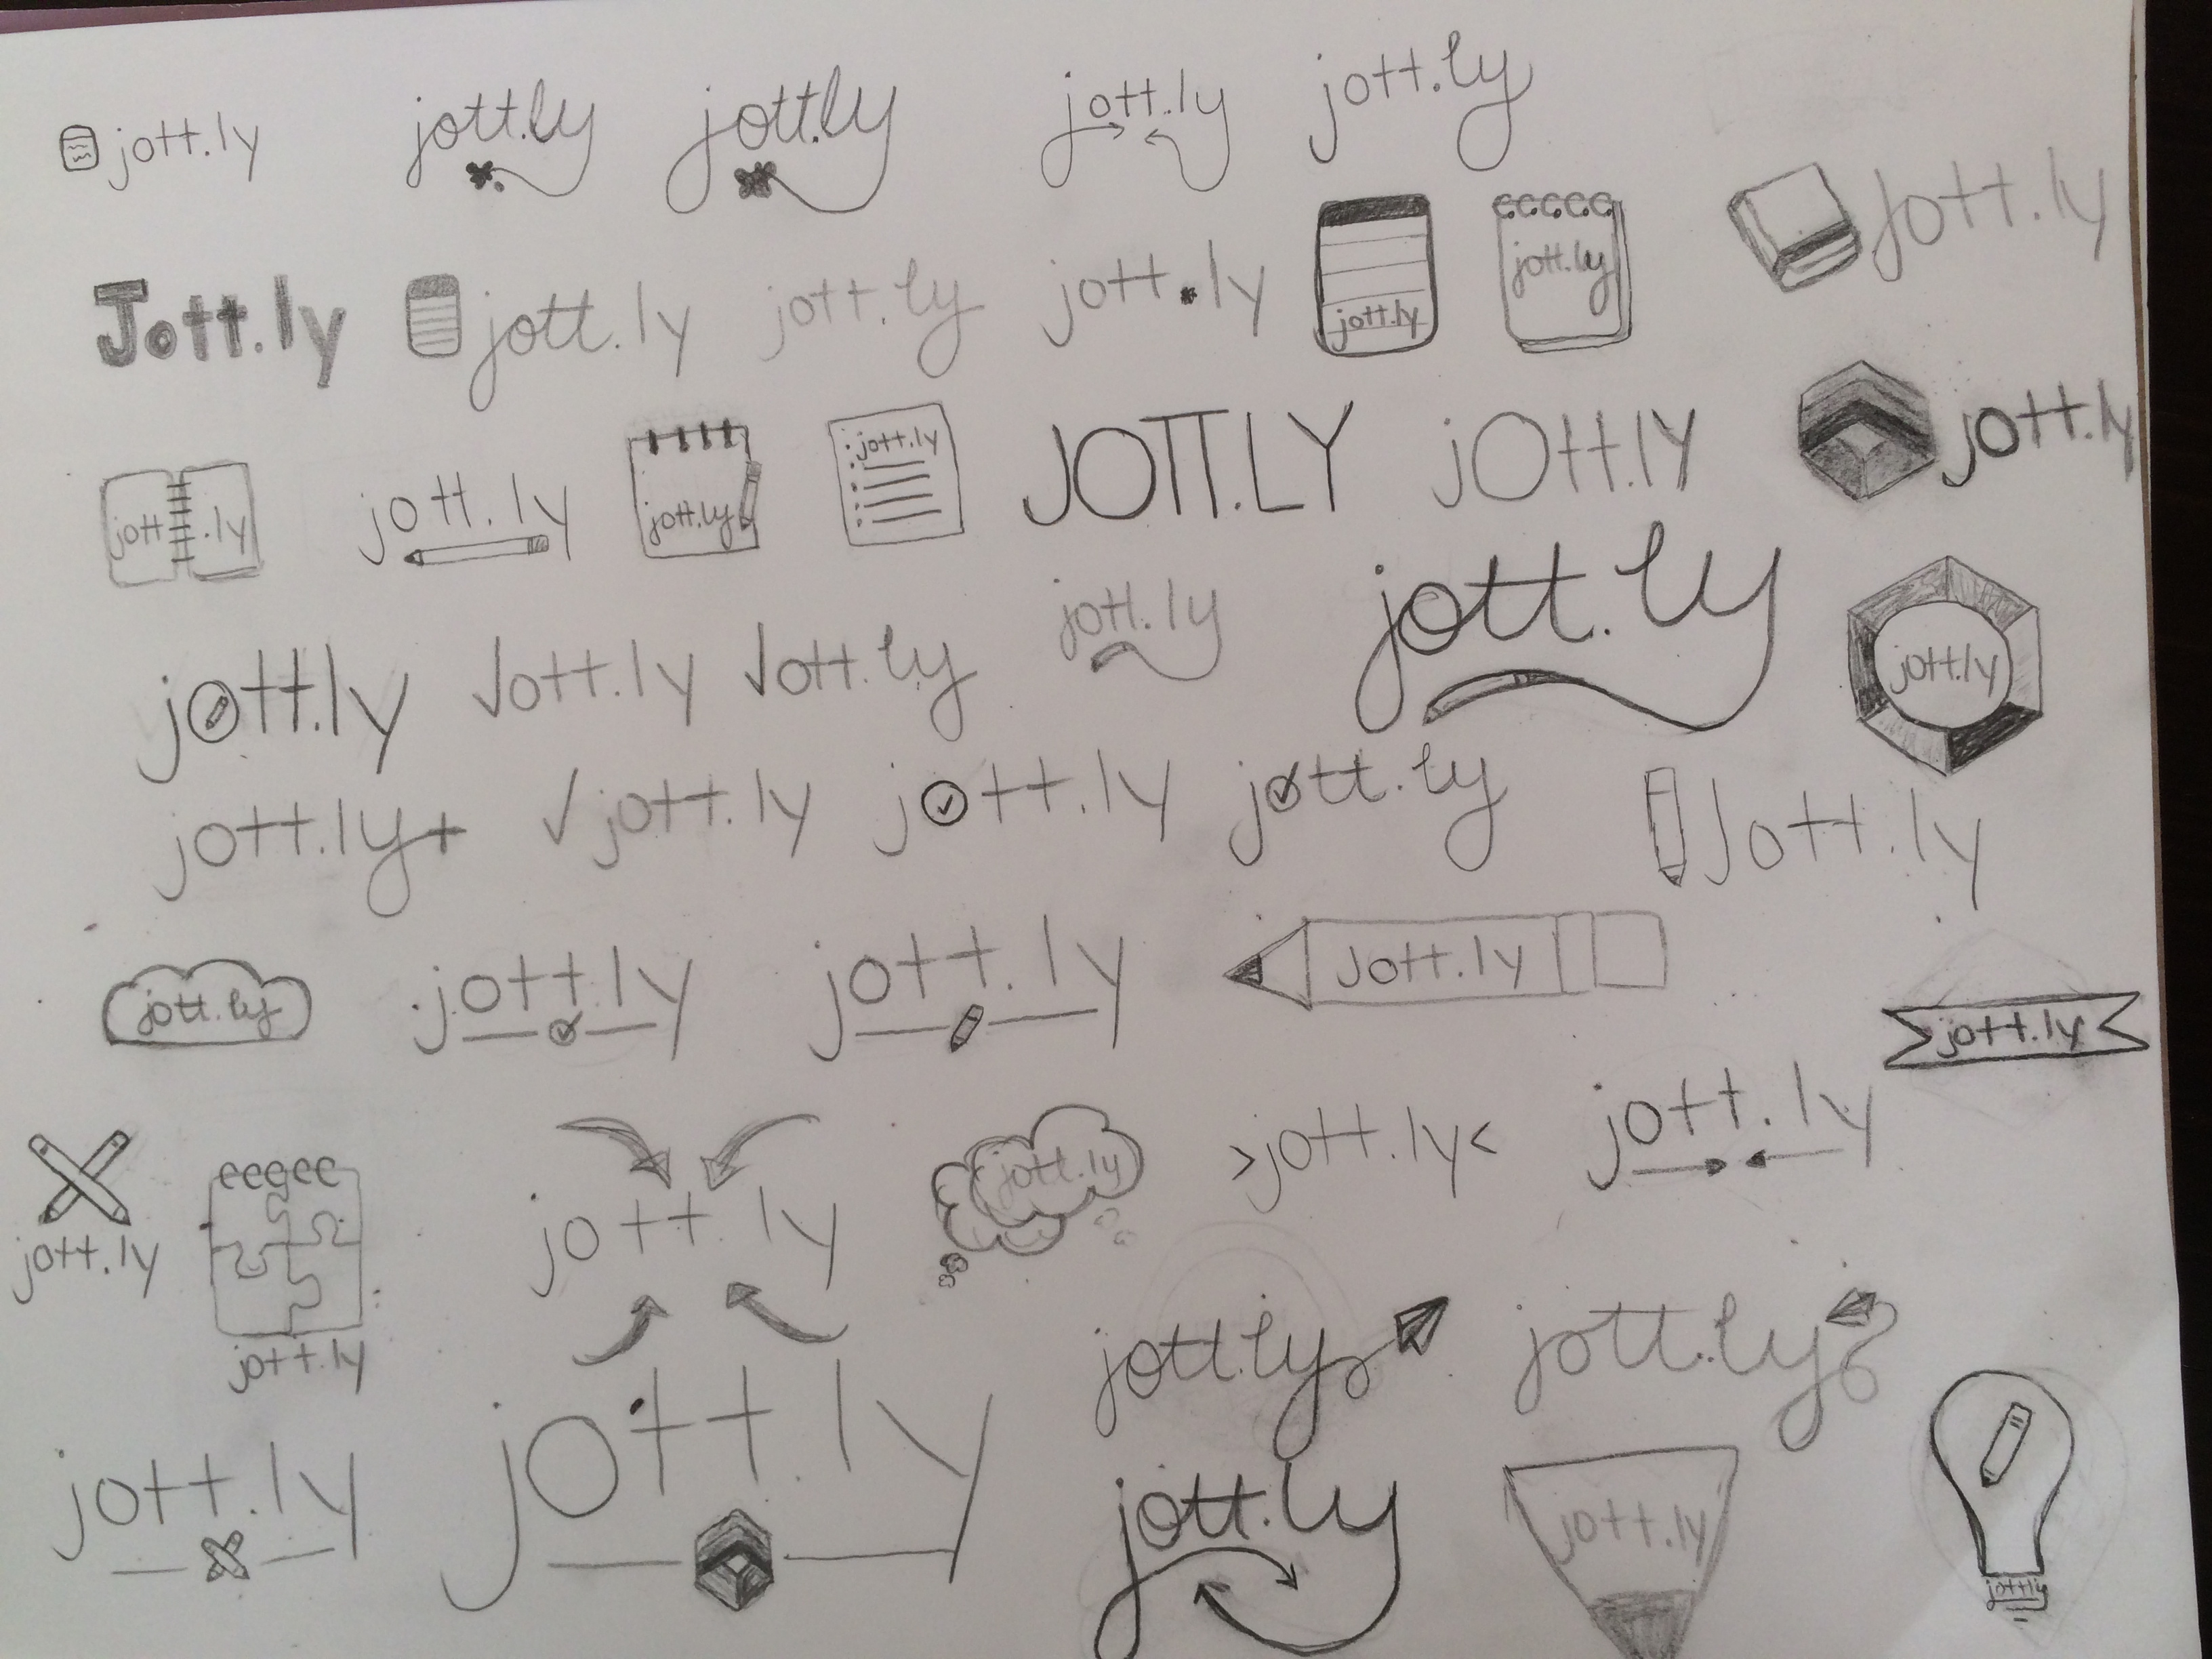 jott.ly
jott.ly
jott.ly
jott.ly
jott.ly
Jott.ly
jott.ly
jott.ly
jott.ly
jott.ly
jott.ly
Jott.ly
jott.ly
jott.ly
jott.ly
jott.ly
JOTT.LY
jott.ly
jott.ly
jott.ly
Jott.ly
Jott.ly
jott.ly
jott.ly
jott.ly
jott.ly+
jott.ly
jott.ly
jott.ly
Jott.ly
jott.ly
jott.ly
jott.ly
Jott.ly
jott.ly
jott.ly
jott.ly
jott.ly
jott.ly
>jott.ly<
jott.ly
jott.ly
jott.ly
jott.ly
jott.ly
jott.ly
jott.ly
jott.ly